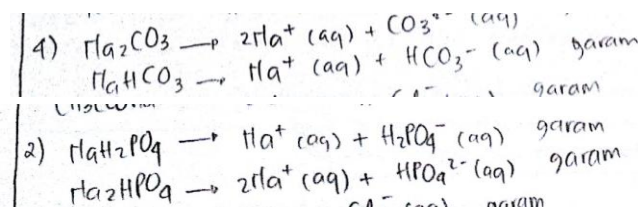 4) Na₂CO₃ → 2Na⁺ (aq) + CO₃²⁻ (aq)
NaHCO₃ → Na⁺ (aq) + HCO₃⁻ (aq) garam
garam
2) NaH₂PO₄ → Na⁺ (aq) + H₂PO₄⁻ (aq) garam
Na₂HPO₄ → 2Na⁺ (aq) + HPO₄²⁻ (aq) garam
garam